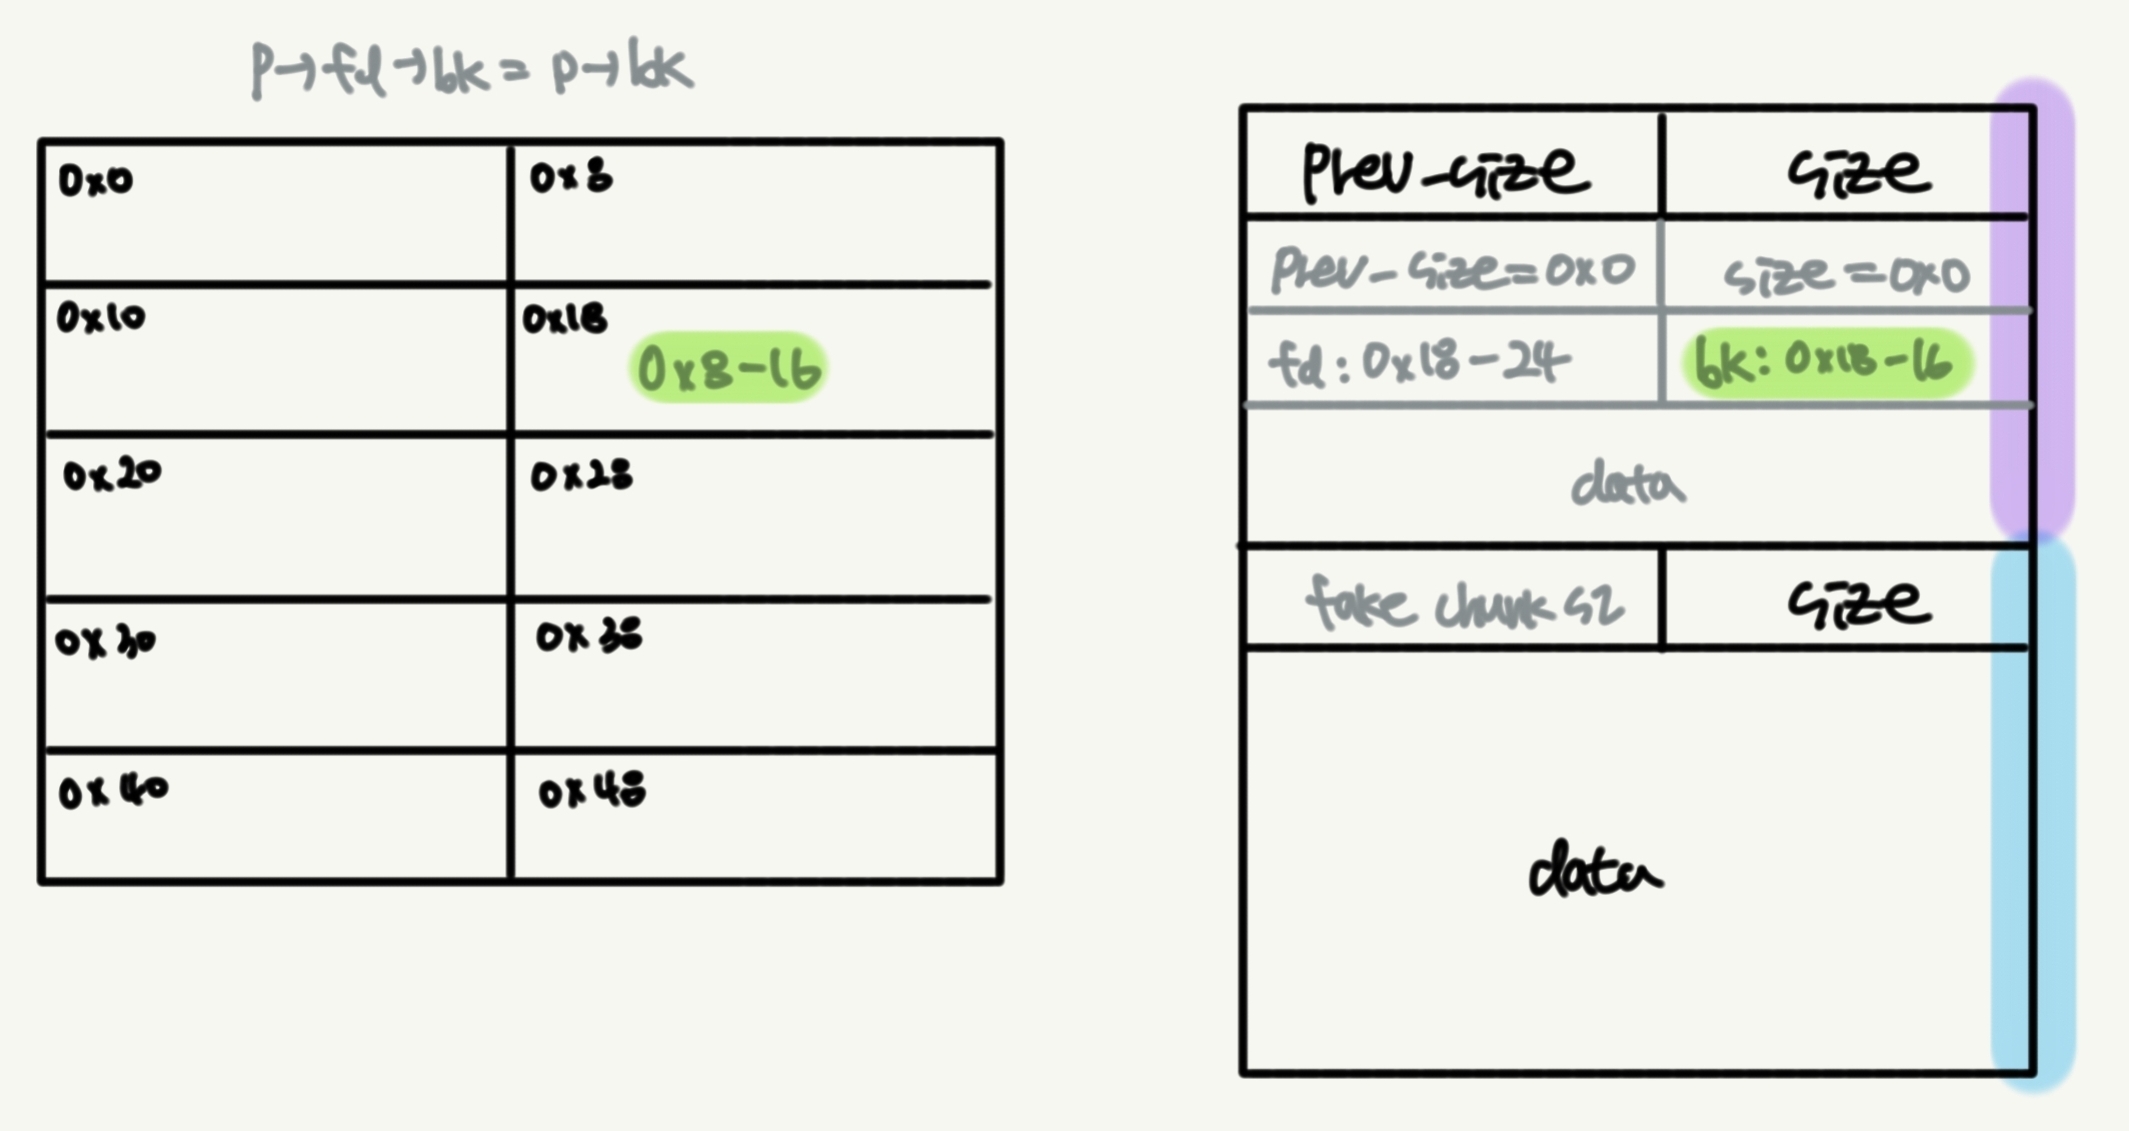 P→fd→bk = p→bk
0x0 0x8
0x10 0x18
0x8-16
0x20 0x28
0x30 0x38
0x40 0x48
Prev_size size
Prev_size=0x0 size=0x0
fd: 0x18-24 bk: 0x18-16
data
fake chunk sz size
data